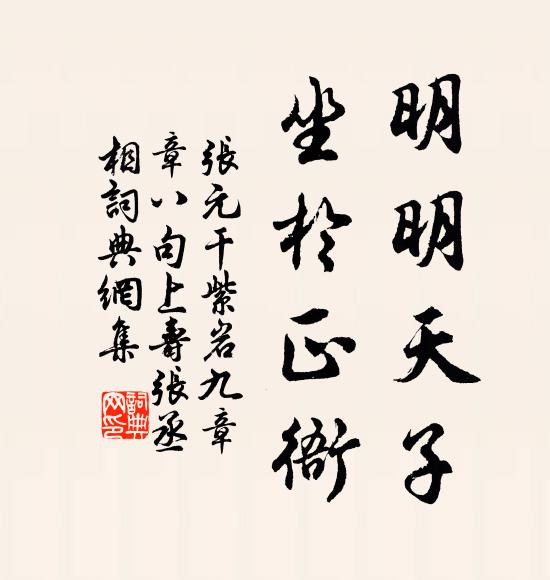 明明天子
坐於正衙
張元干紫岩九章
章八句上壽張丞
相詞典網集
詞典
网印